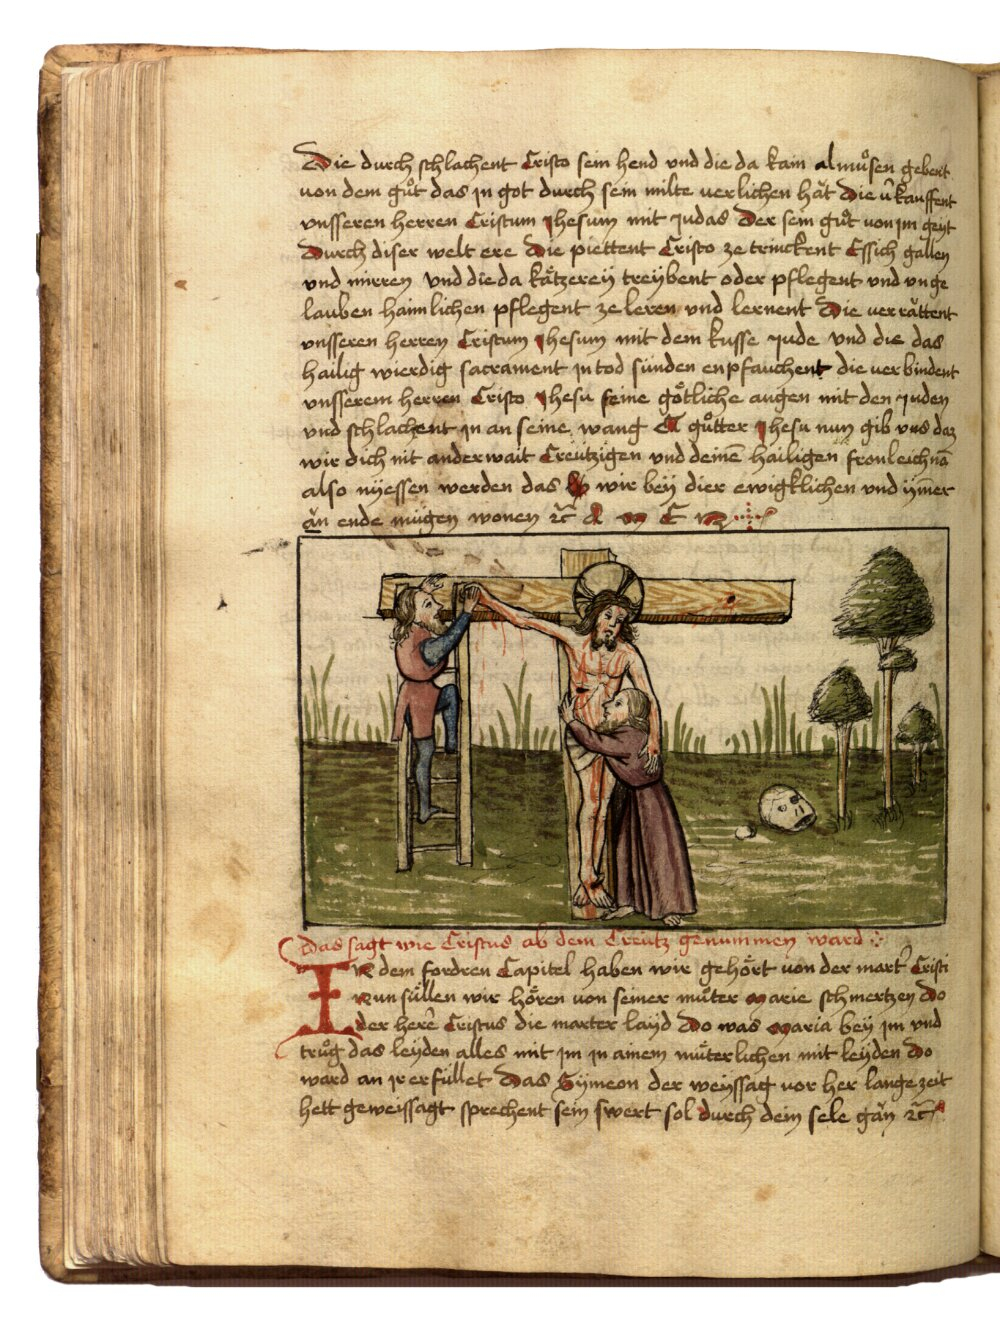 Die durch schlachent Cristo sein hend vnd die da kain almůsen gebent
von dem gůt das jn got durch sein milte verlichen hăt Die v̂kauffent
vnsseren herren Cristum Jhesum mit judas Der sein gůt von jm geyt
Durch diser welt ere Die piettent Cristo ze trinckent Essich gallen
vnd mirren vnd die da kätzereÿ treÿbent oder pflegent vnd vnge
lauben haimlichen pflegent ze leren vnd lernent Die verrättent
vnsseren herren Cristum Jhesum mit dem kusse jude vnd die das
hailig wierdig sacrament jn tod sünden enpfauchent die verbindent
vnsserem herren Cristo Jhesu seine götliche augen mit den juden
vnd schlachent jn an seine wang gůtter Jhesu nun gib vns daz
wir dich nit anderwait Creützigen vnd deinē hailigen fronleichnā
also nÿessen werden das wir beÿ dier ewigklichen vnd ÿm̄er
ăn ende mügen wonen ꝛc̄ A M E N
Das sagt wie Cristus ab dem Creütz genummen ward
IN dem fordren Capitel haben wir gehört von der mart' Cristi
Nun süllen wir hören von seiner můter Marie schmertzen Do
der herē Cristus die marter layd Do was Maria beÿ jm vnd
trůg das leÿden alles mit jm jn ainem müterlichen mit leÿden Do
ward an jr erfüllet Das Sÿmeon der weÿssag vor her lange zeit
hett geweissagt sprechent sein swert sol durch dein sele găn ꝛc̄